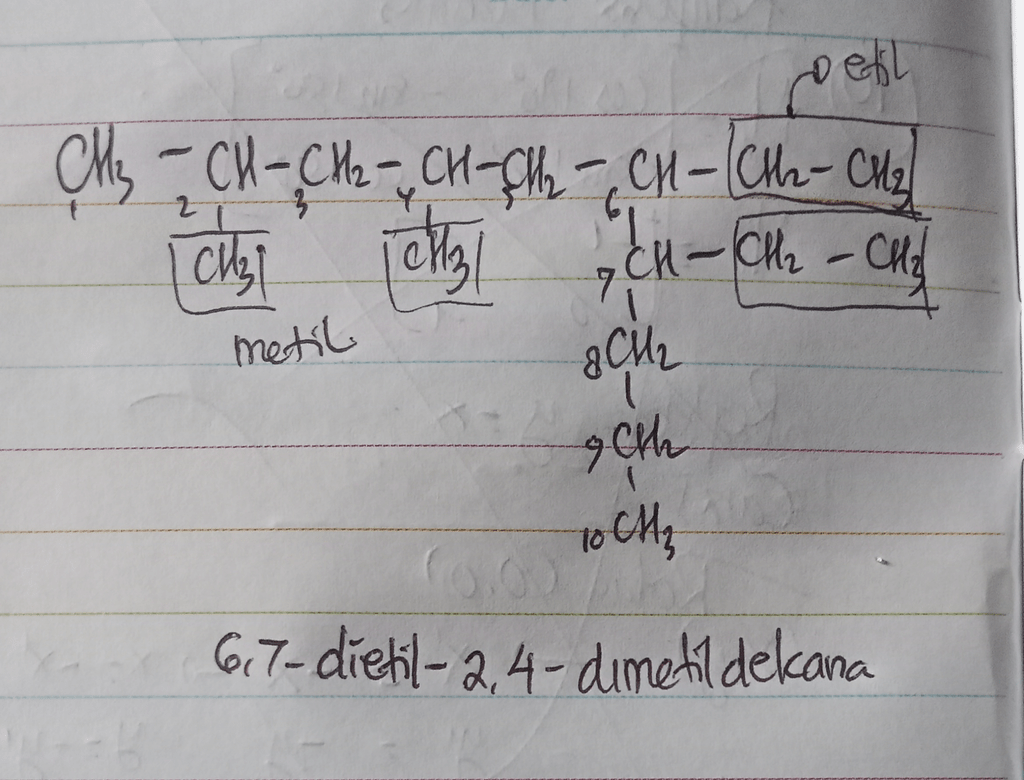 etil
CH3 - CH - CH2 - CH - CH2 - CH - CH2 - CH3
1 2 3 4 5 6
CH3 CH3 7 CH - CH2 - CH3
metil 8 CH2
9 CH2
10 CH3
6,7-dietil-2,4-dimetil dekana